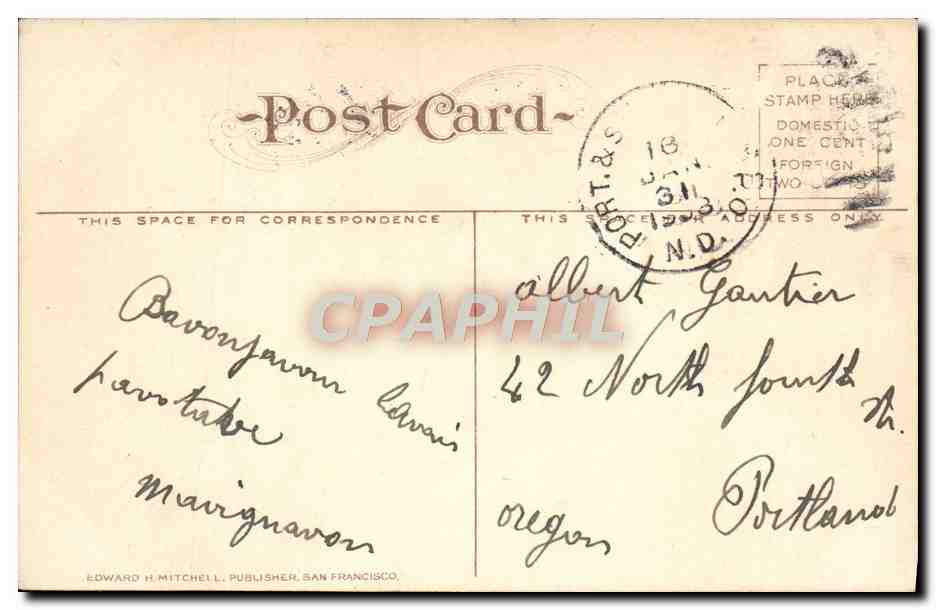 Post Card
PLACE
STAMP HERE
DOMESTIC
ONE CENT
FOREIGN
TWO CENTS
PORT. & S
N.D.
18
JAN
THIS SPACE FOR CORRESPONDENCE
THIS SPACE FOR ADDRESS ONLY
CPAPHIL
Albert Gautier
42 North fourth
Portland
oregon
Mavignavon
EDWARD H. MITCHELL, PUBLISHER, SAN FRANCISCO.